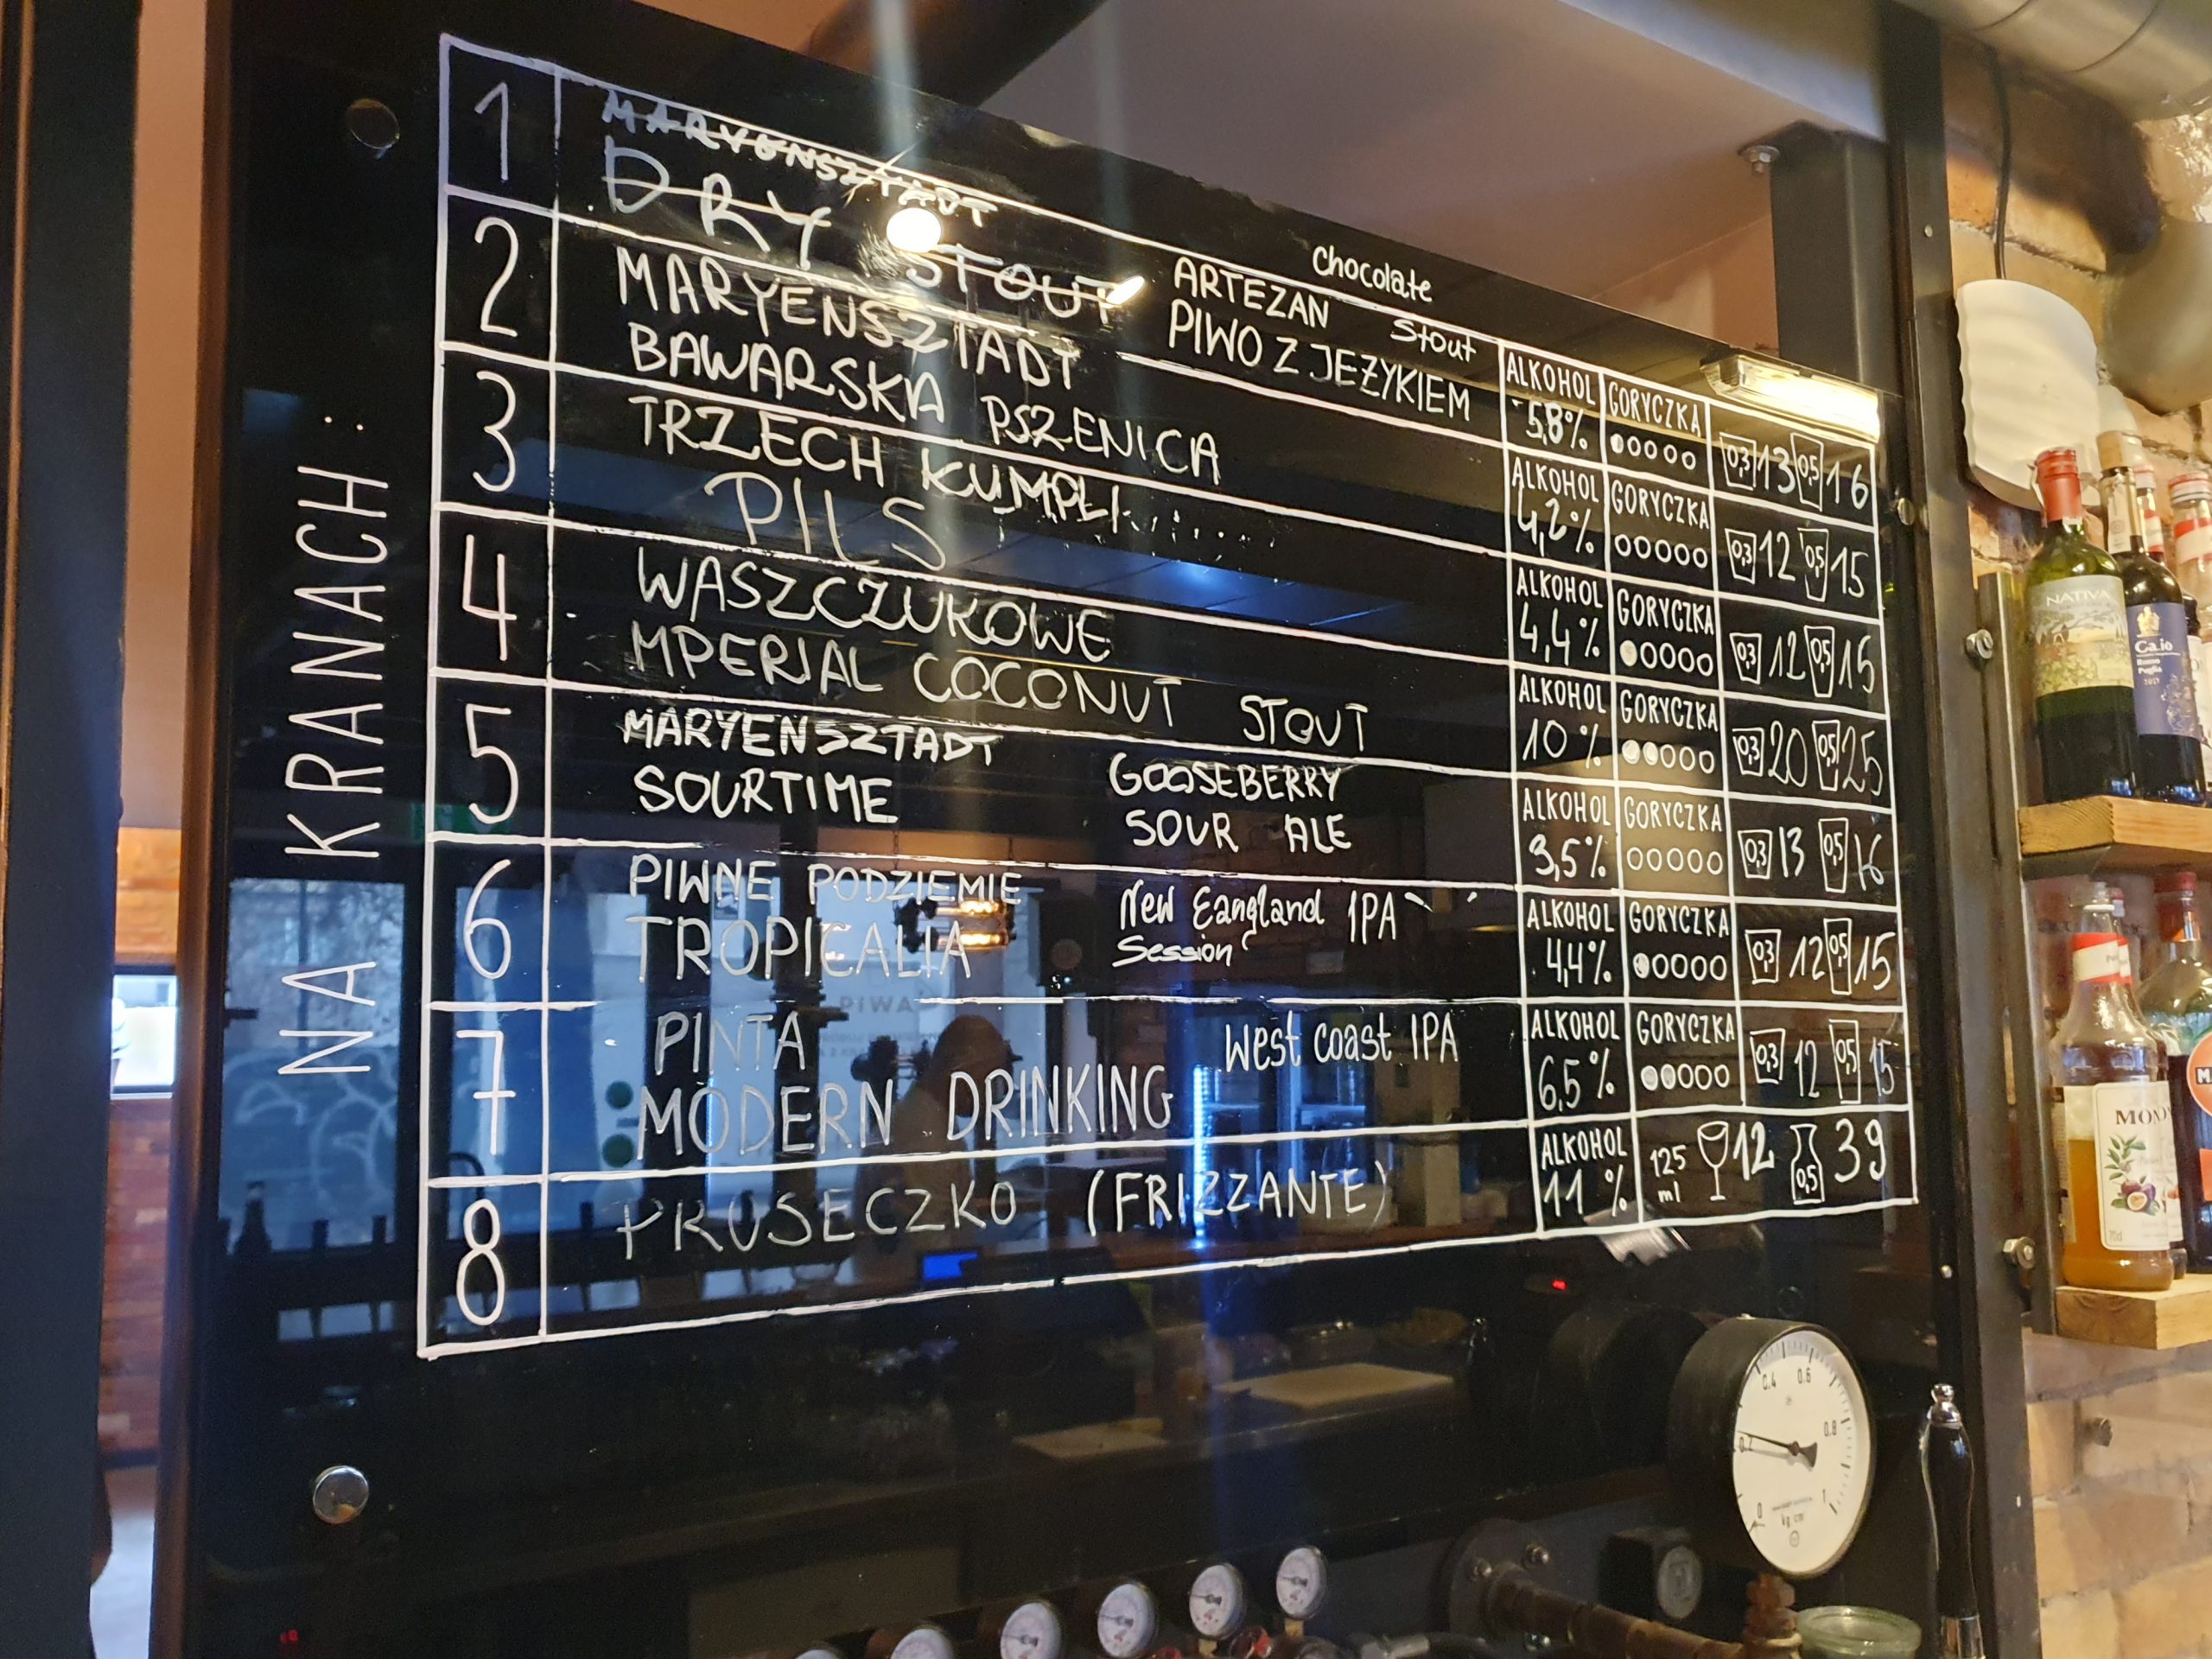 NA KRANACH:
1
MARYENSZTADT
DRY STOUT
Chocolate
ARTEZAN Stout
PIWO Z JEŻYKIEM
ALKOHOL
5,8%
GORYCZKA
0,3 13 0,5 16
2
MARYENSZTADT
BAWARSKA PSZENICA
ALKOHOL
4,2%
GORYCZKA
0,3 12 0,5 15
3
TRZECH KUMPLI
PILS
ALKOHOL
4,4%
GORYCZKA
0,3 12 0,5 15
4
WASZCZUKOWE
MPERIAL COCONUT STOUT
ALKOHOL
10%
GORYCZKA
0,3 20 0,5 25
5
MARYENSZTADT
SOURTIME
GOOSEBERRY
SOUR ALE
ALKOHOL
3,5%
GORYCZKA
0,3 13 0,5 16
6
PIWNE PODZIEMIE
TROPICALIA
New Eangland IPA
Session
ALKOHOL
4,4%
GORYCZKA
0,3 12 0,5 15
7
PINTA
MODERN DRINKING
West coast IPA
ALKOHOL
6,5%
GORYCZKA
0,3 12 0,5 15
8
PROSECZKO (FRIZZANTE)
ALKOHOL
11%
125 ml 12 0,5 39
NATIVA
Ca.io
0
0.4
0.6
0.8
1
kg cm